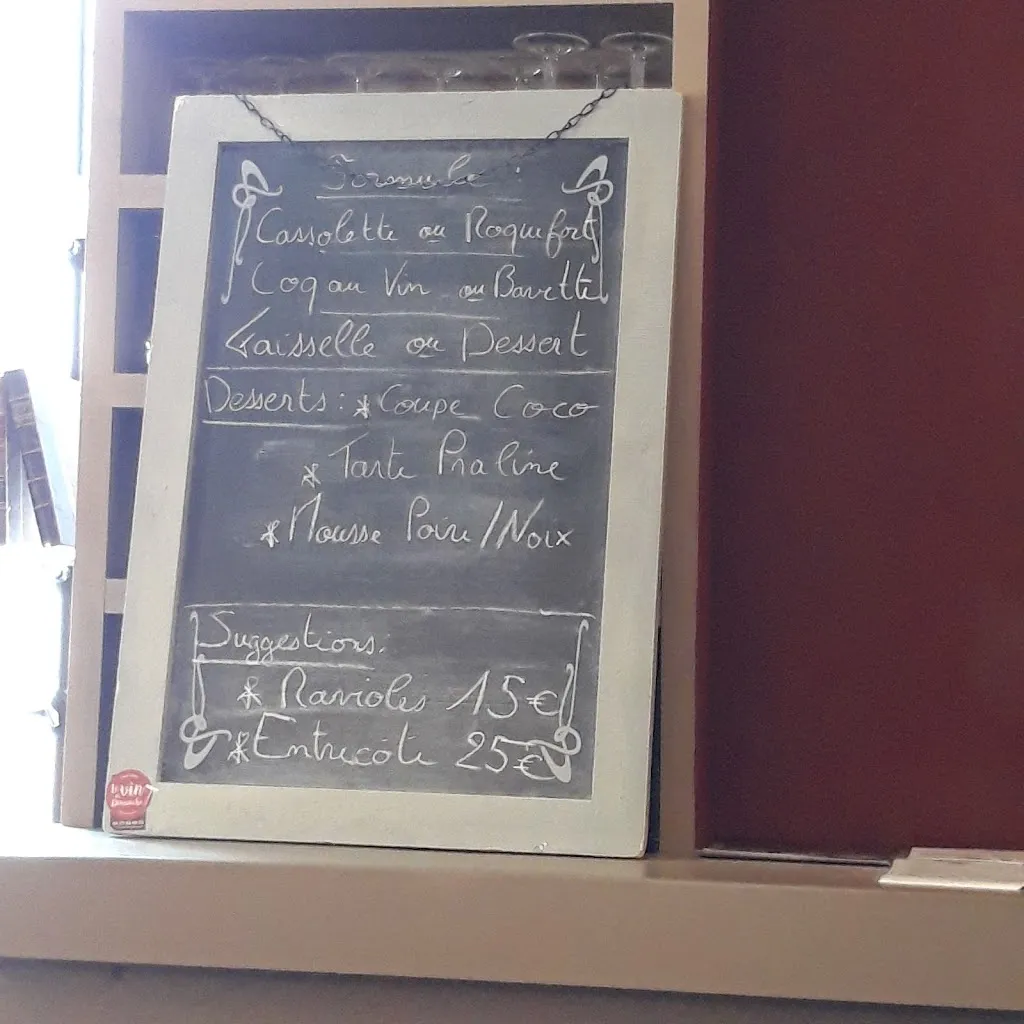 Formule :
Cassolette ou Roquefort
Coq au Vin ou Bavette
Faisselle ou Dessert
Desserts : * Coupe Coco
* Tarte Praline
* Mousse Poire/Noix
Suggestions:
* Ravioles 15€
* Entrecôte 25€
le vin